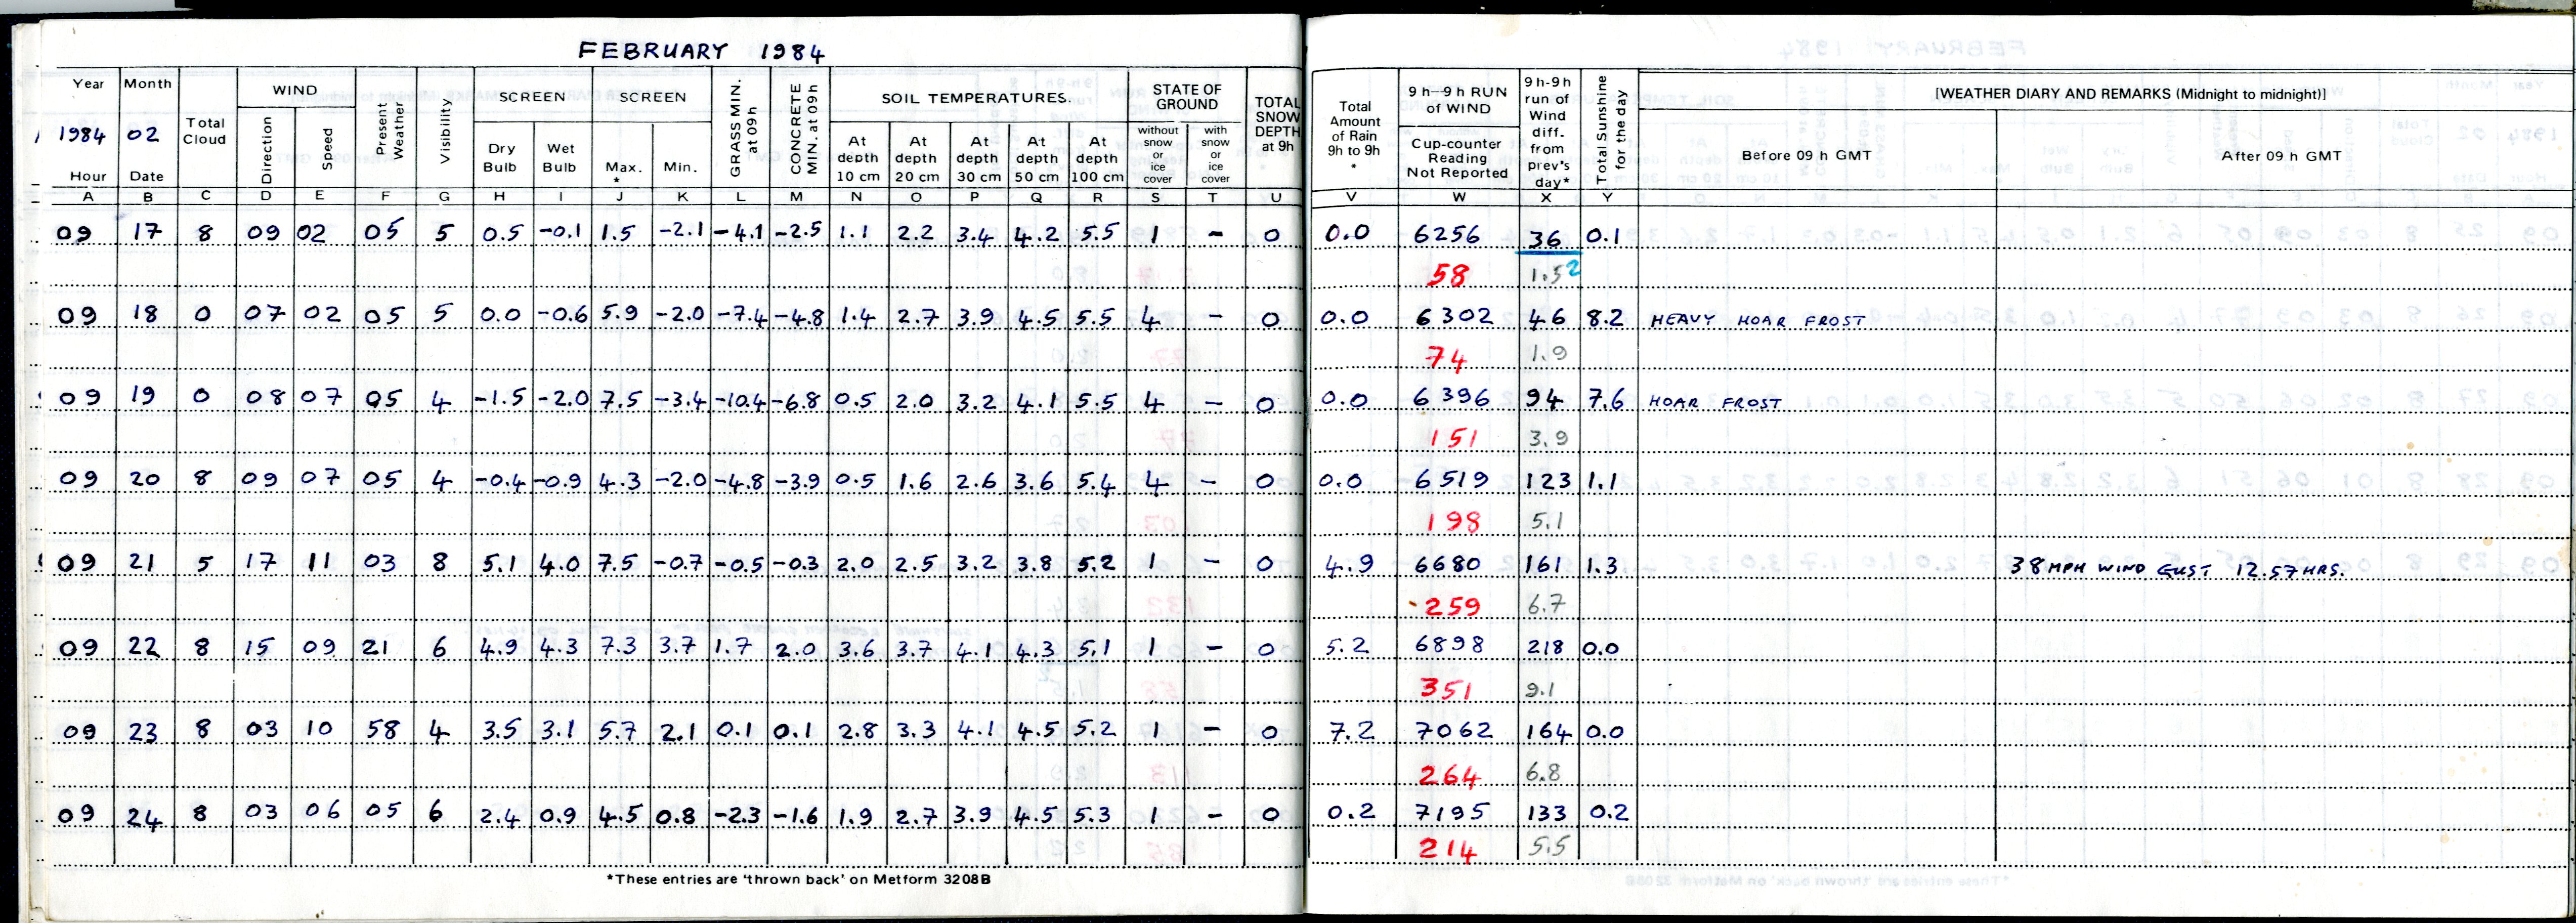 FEBRUARY 1984
Year Month Total Cloud WIND Present Weather Visibility SCREEN SCREEN GRASS MIN. at 09h CONCRETE MIN. at 09h SOIL TEMPERATURES. STATE OF GROUND TOTAL SNOW DEPTH at 9h Total Amount of Rain 9h to 9h * 9h—9h RUN OF WIND 9h-9h run of Wind diff. from prev's day* Total Sunshine for the day [WEATHER DIARY AND REMARKS (Midnight to midnight)]
1984 02 Direction Speed Dry Bulb Wet Bulb Max. * Min. At depth 10 cm At depth 20 cm At depth 30 cm At depth 50 cm At depth 100 cm without snow or ice cover with snow or ice cover Cup-counter Reading Not Reported Before 09 h GMT After 09 h GMT
Hour Date
A B C D E F G H I J K L M N O P Q R S T U V W X Y
09 17 8 09 02 05 5 0.5 -0.1 1.5 -2.1 -4.1 -2.5 1.1 2.2 3.4 4.2 5.5 1 - 0 0.0 6256 36 0.1
58 1.52
09 18 0 07 02 05 5 0.0 -0.6 5.9 -2.0 -7.4 -4.8 1.4 2.7 3.9 4.5 5.5 4 - 0 0.0 6302 46 8.2 HEAVY HOAR FROST
74 1.9
09 19 0 08 07 05 4 -1.5 -2.0 7.5 -3.4 -10.4 -6.8 0.5 2.0 3.2 4.1 5.5 4 - 0 0.0 6396 94 7.6 HOAR FROST
151 3.9
09 20 8 09 07 05 4 -0.4 -0.9 4.3 -2.0 -4.8 -3.9 0.5 1.6 2.6 3.6 5.4 4 - 0 0.0 6519 123 1.1
198 5.1
09 21 5 17 11 03 8 5.1 4.0 7.5 -0.7 -0.5 -0.3 2.0 2.5 3.2 3.8 5.2 1 - 0 4.9 6680 161 1.3 38 MPH WIND GUST 12.57 HRS.
259 6.7
09 22 8 15 09 21 6 4.9 4.3 7.3 3.7 1.7 2.0 3.6 3.7 4.1 4.3 5.1 1 - 0 5.2 6898 218 0.0
351 9.1
09 23 8 03 10 58 4 3.5 3.1 5.7 2.1 0.1 0.1 2.8 3.3 4.1 4.5 5.2 1 - 0 7.2 7062 164 0.0
264 6.8
09 24 8 03 06 05 6 2.4 0.9 4.5 0.8 -2.3 -1.6 1.9 2.7 3.9 4.5 5.3 1 - 0 0.2 7195 133 0.2
214 5.5
*These entries are 'thrown back' on Metform 3208B